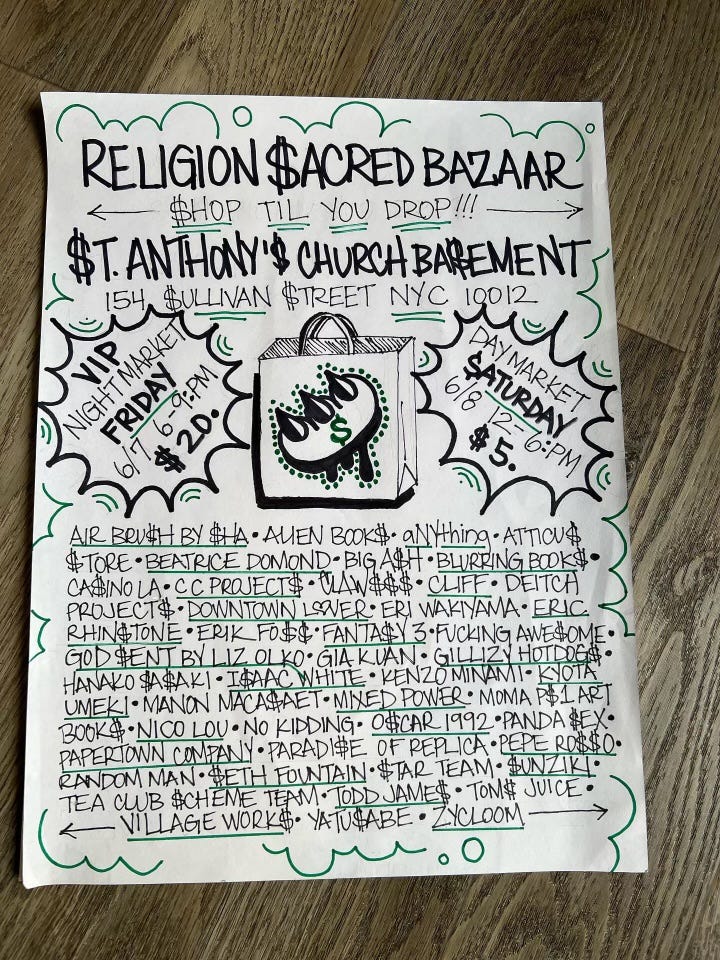 RELIGION $ACRED BAZAAR
$HOP TIL YOU DROP!!!
$T. ANTHONY'$ CHURCH BA$EMENT
154 $ULLIVAN $TREET NYC 10012
VIP
NIGHT MARKET
FRIDAY
6/7 6-9:PM
$20.
DAY MARKET
$ATURDAY
6/8 12-6:PM
$5.
$
AIR BRU$H BY $HA • ALIEN BOOK$ • aNYthing • ATTICU$
$TORE • BEATRICE DOMOND • BIG A$H • BLURRING BOOK$ •
CA$INO LA • C C PROJECT$ • CLAW$$$ • CLIFF • DEITCH
PROJECT$ • DOWNTOWN LOVER • ERI WAKIYAMA • ERIC
RHIN$TONE • ERIK FO$$ • FANTA$Y 3 • FUCKING AWE$OME •
GOD $ENT BY LIZ OLKO • GIA KUAN • GILLIZY HOTDOG$ •
HANAKO $A$AKI • I$AAC WHITE • KENZO MINAMI • KYOTA
UMEKI • MANON MACA$AET • MIXED POWER • MOMA P$1 ART
BOOK$ • NICO LOU • NO KIDDING • O$CAR 1992 • PANDA $EX •
PAPERTOWN COMPANY • PARADI$E OF REPLICA • PEPE RO$$O •
RANDOM MAN • $ETH FOUNTAIN • $TAR TEAM • $UNZIKI •
TEA CLUB $CHEME TEAM • TODD JAME$ • TOM$ JUICE •
VILLAGE WORK$ • YATU$ABE • ZYCLOOM